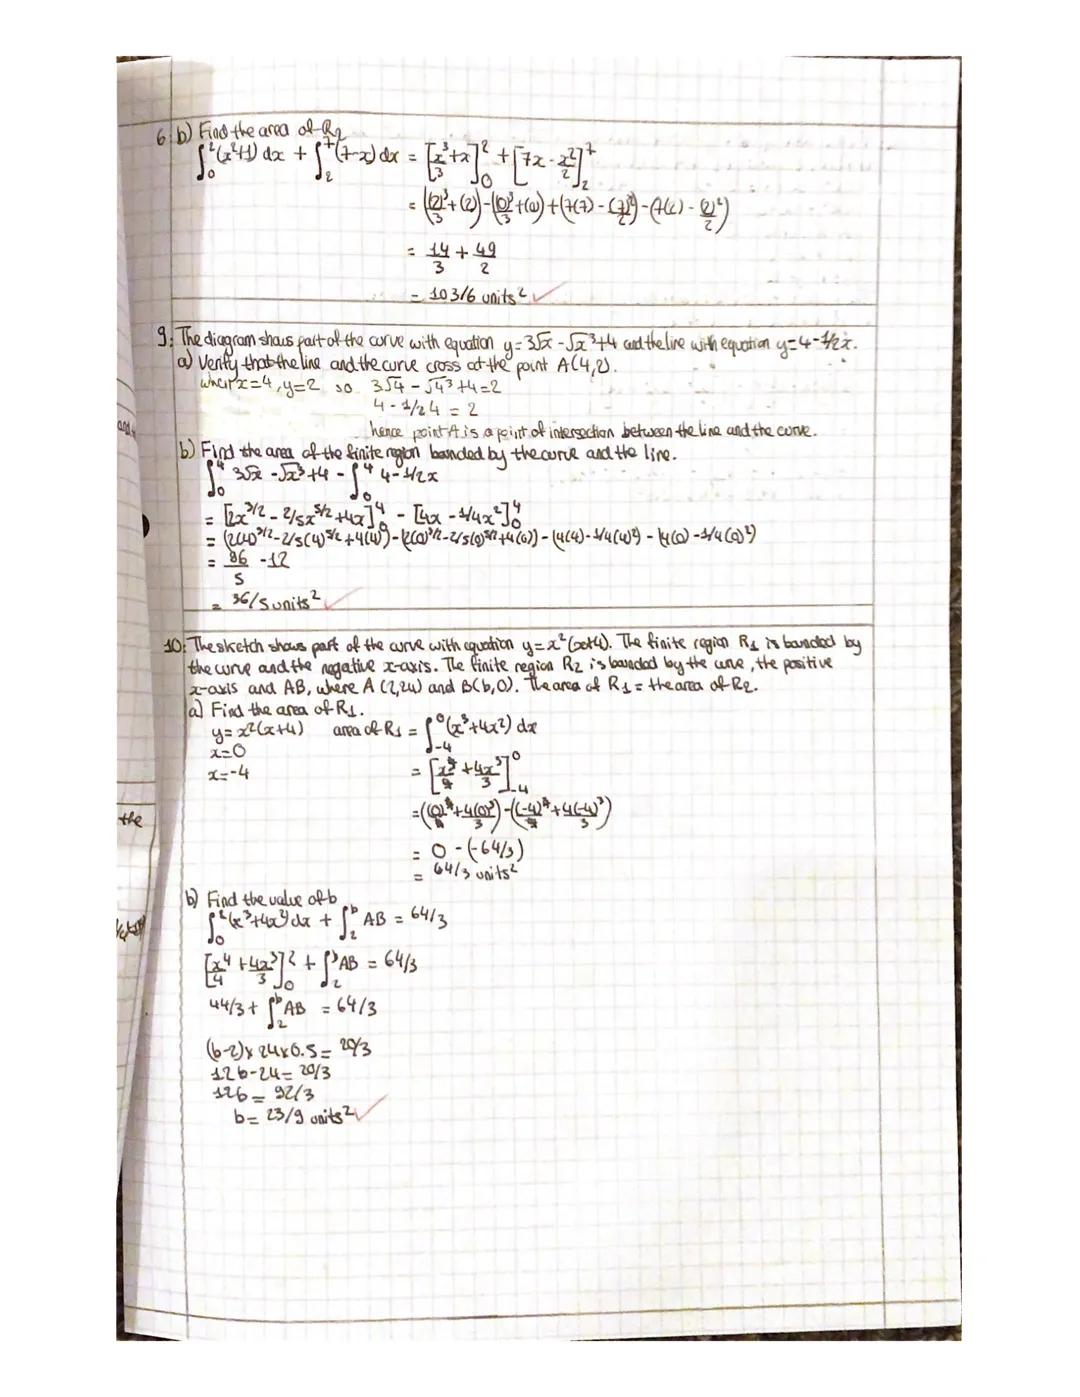 6. b) Find the area of R₂
∫₀²(x²+1) dx + ∫₂⁷(7-x) dx = [x³/3 + x]₀² + [7x - x²/2]₂⁷
= ((2)³/3 + (2)) - ((0)³/3 + (0)) + (7(7) - (7)²/2) - (7(2) - (2)²/2)
= 14/3 + 49/2
= 103/6 units² ✓
9. The diagram shows part of the curve with equation y=3√x - √x³+4 and the line with equation y=4-1/2x.
a) Verify that the line and the curve cross at the point A(4,2).
when x=4, y=2 so 3√4 - √4³+4=2
4 - 1/2 4 = 2
hence point A is a point of intersection between the line and the curve.
and
b) Find the area of the finite region bounded by the curve and the line.
∫₀⁴ 3√x - √x³+4 - ∫₀⁴ 4-1/2x
= [2x^3/2 - 2/5x^5/2 + 4x]₀⁴ - [4x - 1/4x²]₀⁴
= (2(4)^3/2 - 2/5(4)^5/2 + 4(4)) - (2(0)^3/2 - 2/5(0)^5/2 + 4(0)) - (4(4) - 1/4(4)²) - (4(0) - 1/4(0)²)
= 96/5 - 12
= 36/5 units² ✓
10. The sketch shows part of the curve with equation y=x²(x+4). The finite region R₁ is bounded by
the curve and the negative x-axis. The finite region R₂ is bounded by the curve, the positive
x-axis and AB, where A (2,24) and B(b,0). The area of R₁ = the area of R₂.
a) Find the area of R₁.
y=x²(x+4) area of R₁ = ∫₋₄⁰(x³+4x²) dx
x=0
x=-4 = [x⁴/4 + 4x³/3]₋₄⁰
the
= ((0)⁴/4 + 4(0)³/3) - ((-4)⁴/4 + 4(-4)³/3)
= 0 - (-64/3)
= 64/3 units²
b) Find the value of b
∫₀²(x³+4x²) dx + ∫₂ᵇ AB = 64/3
[x⁴/4 + 4x³/3]₀² + ∫₂ᵇ AB = 64/3
44/3 + ∫₂ᵇ AB = 64/3
(b-2) x 24 x 0.5 = 20/3
12b-24 = 20/3
12b = 92/3
b = 23/9 units² ✓